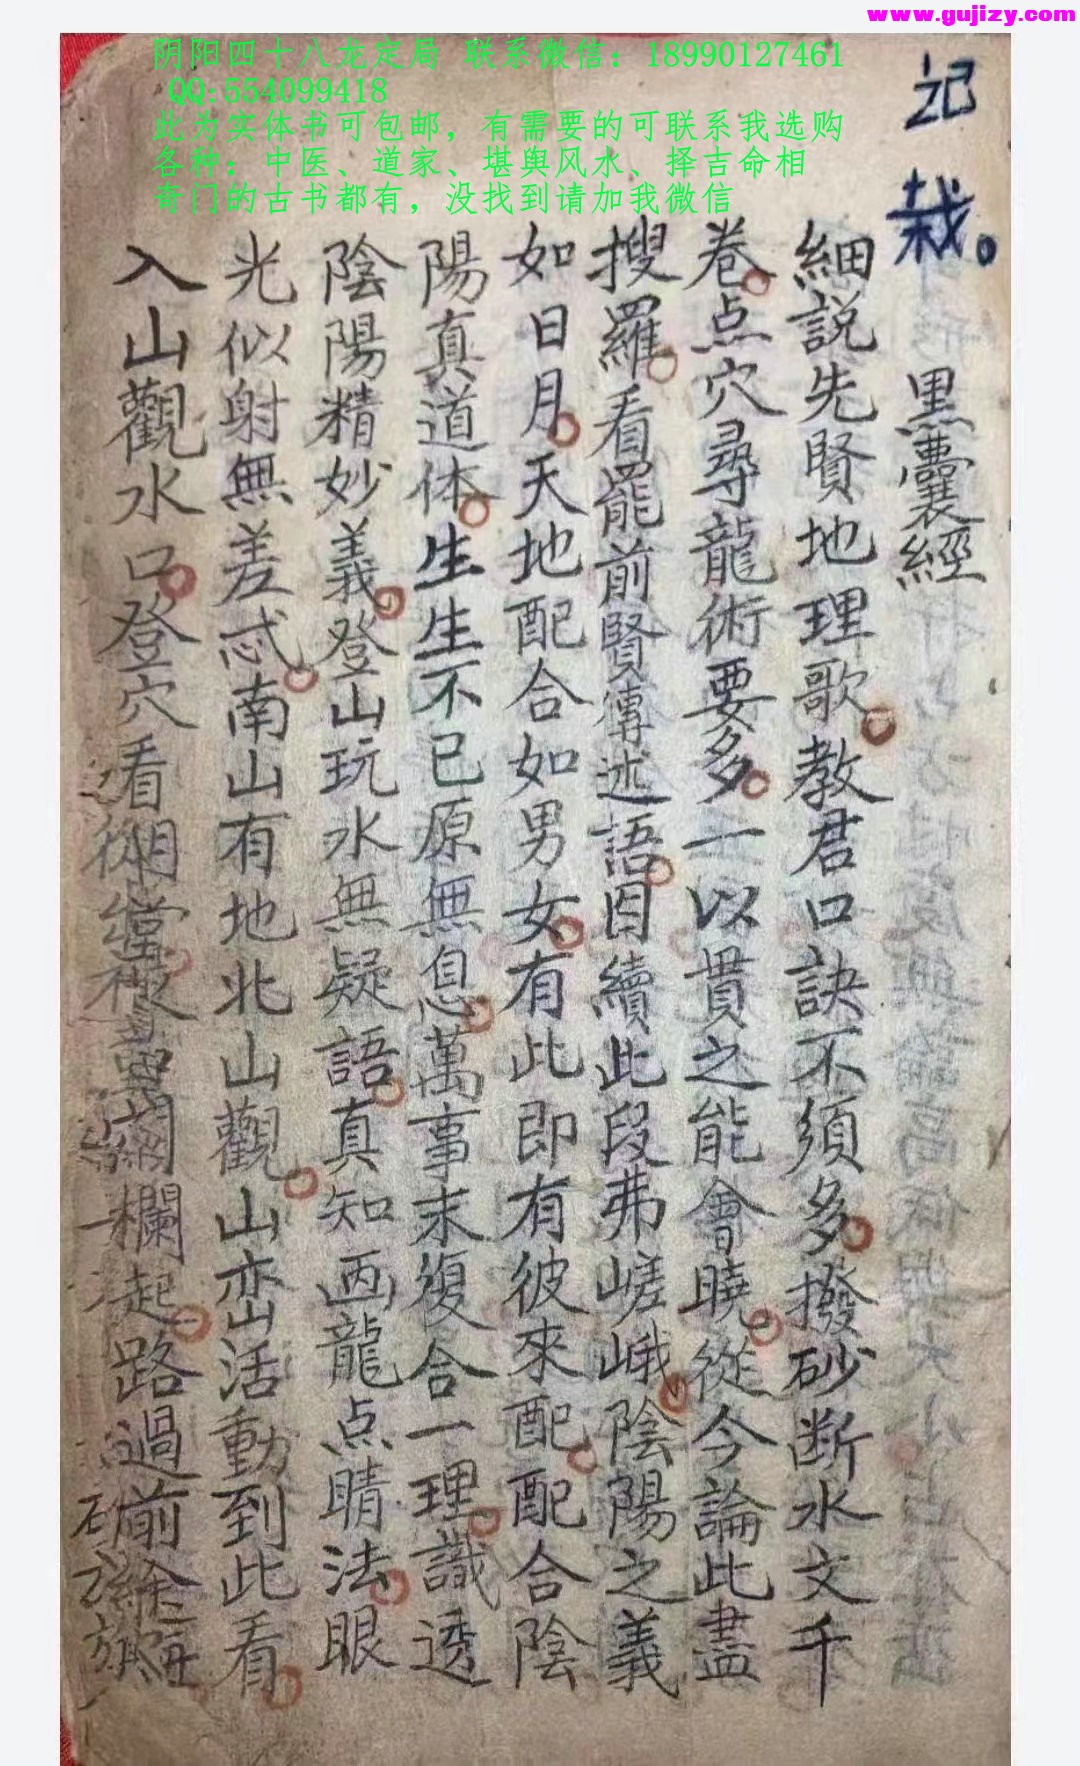 www.gujizy.com
阴阳四十八龙定局 联系微信：18990127461
QQ:554099418
此为实体书可包邮，有需要的可联系我选购
各种：中医、道家、堪舆风水、择吉命相
奇门的古书都有，没找到请加我微信
记栽。
黑囊經
細説先賢地理歌。教君口訣不須多。撥砂断水文千
卷。点穴尋龍術要多。一以貫之能會曉。從今論此盡
搜羅。看罷前賢傳述語。因續此段弗嵯峨。陰陽之義
如日月。天地配合如男女。有此即有彼來配。配合陰
陽真道体。生生不已原無息。萬事末復合一理。識透
陰陽精妙義。登山玩水無疑語。真知画龍点睛法。眼
光似射無差忒。南山有地北山觀。山峦活動到此看。
入山觀水口。登穴看明堂。欄起。路過前